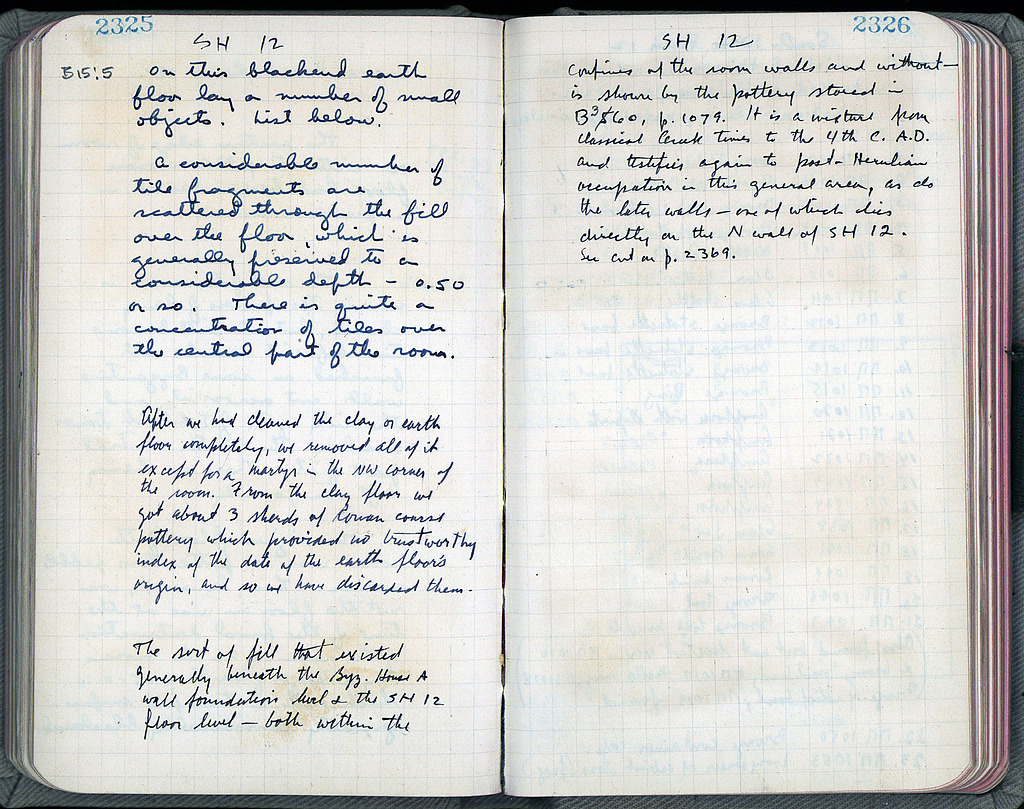 2325
SH 12
On this blackend earth
floor lay a number of small
objects. List below.
A considerable number of
tile fragments are
scattered through the fill
over the floor, which is
generally preserved to a
considerable depth – 0.50
or so. There is quite a
concentration of tiles over
the central part of the room.
After we had cleaned the clay or earth
floor completely, we removed all of it
except for a martyr in the NW corner of
the room. From the clay floor we
got about 3 sherds of Roman coarse
pottery which provided no trustworthy
index of the date of the earth floor's
origin, and so we have discarded them.
The sort of fill that existed
generally beneath the Byz. House A
wall foundation level & the SH 12
floor level – both within the
2326
SH 12
confines of the room walls and without –
is shown by the pottery stored in
p. 1079. It is a mixture from
classical Greek times to the 4th C. A.D.
and testifies again to post-Herulian
occupation in this general area, as do
the later walls – one of which lies
directly on the N wall of SH 12.
See on p. 2369.